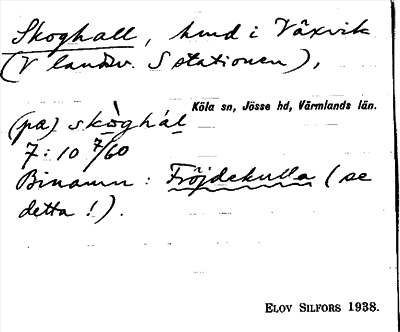 Skoghall, hmd i Växvik
(V landsv. S stationen),
Köla sn, Jösse hd, Värmlands län.
(pa) skòghál
7:10 7/60
Binamn: Fröjdekulla (se
detta!).
ELOV SILFORS 1938.